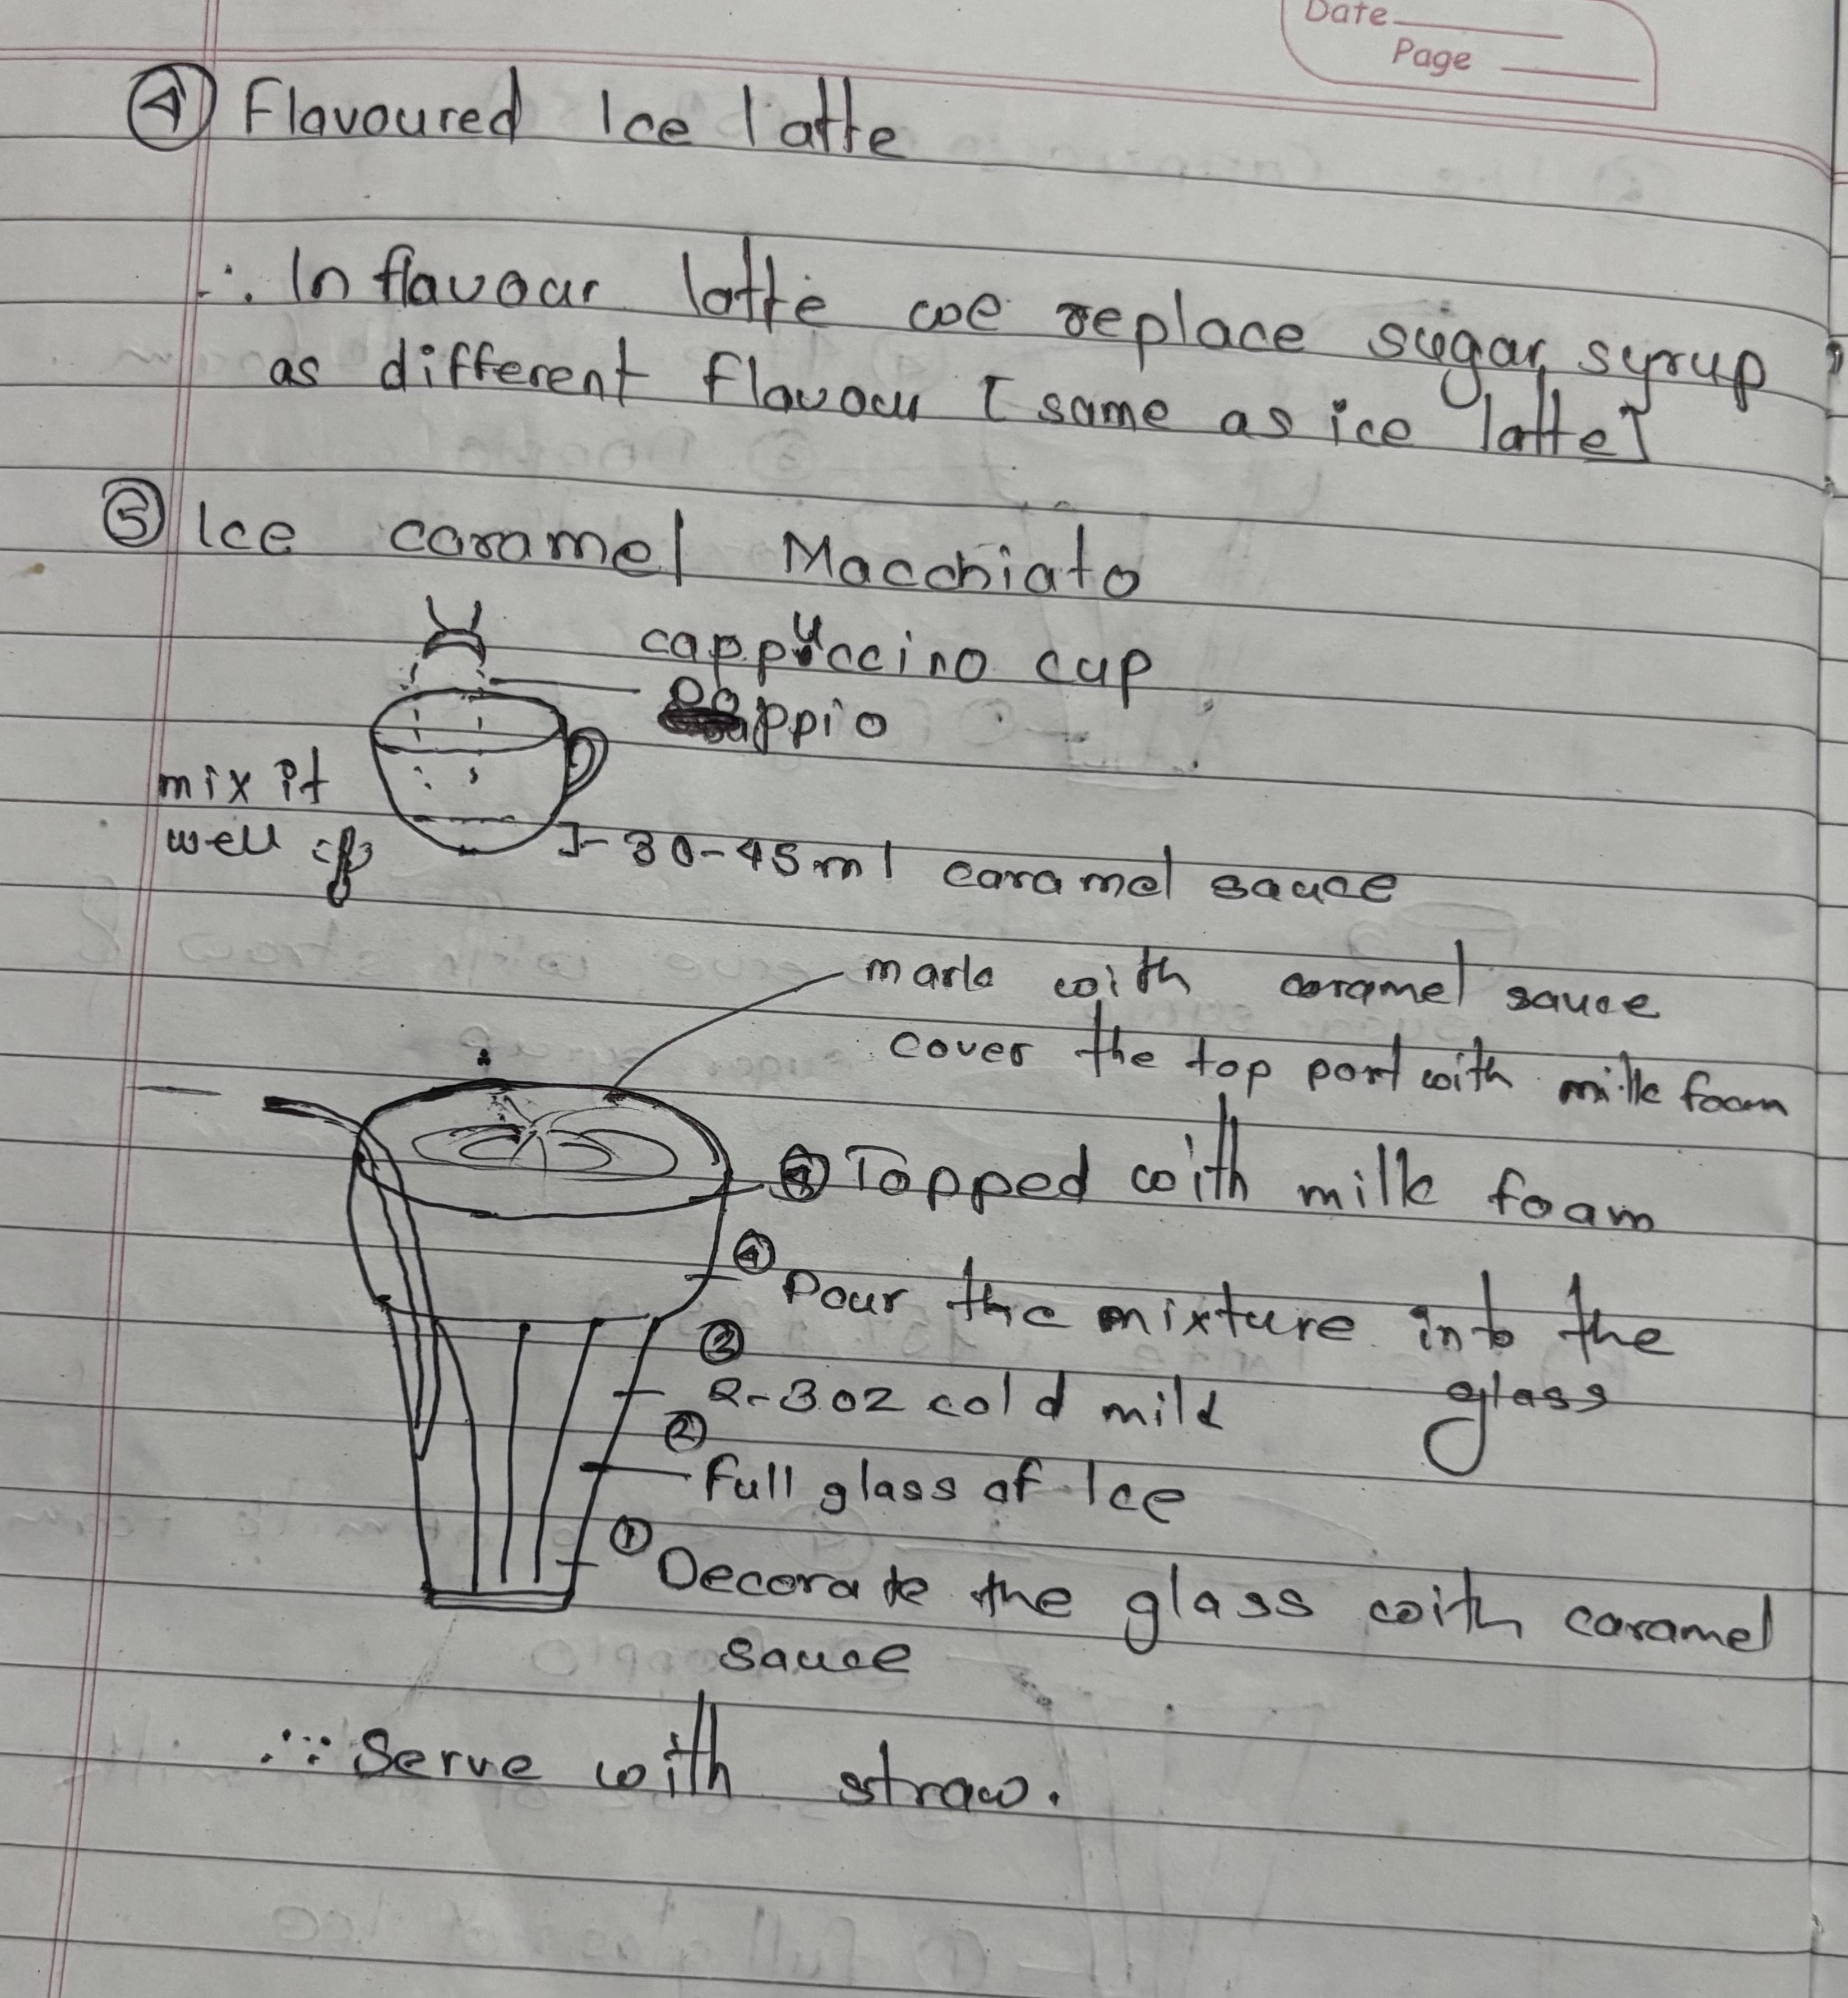 Date
Page
④ Flavoured Ice latte
∴ In flavour latte we replace sugar syrup
as different flavour [same as ice latte]
⑤ Ice caramel Macchiato
cappuccino cup
mix it
well
]-30-45ml caramel sauce
mark with caramel sauce
cover the top part with milk foam
Topped with milk foam
④ Pour the mixture into the
glass
③
2-3oz cold milk
②
full glass of Ice
① Decorate the glass with caramel
sauce
Serve with straw.